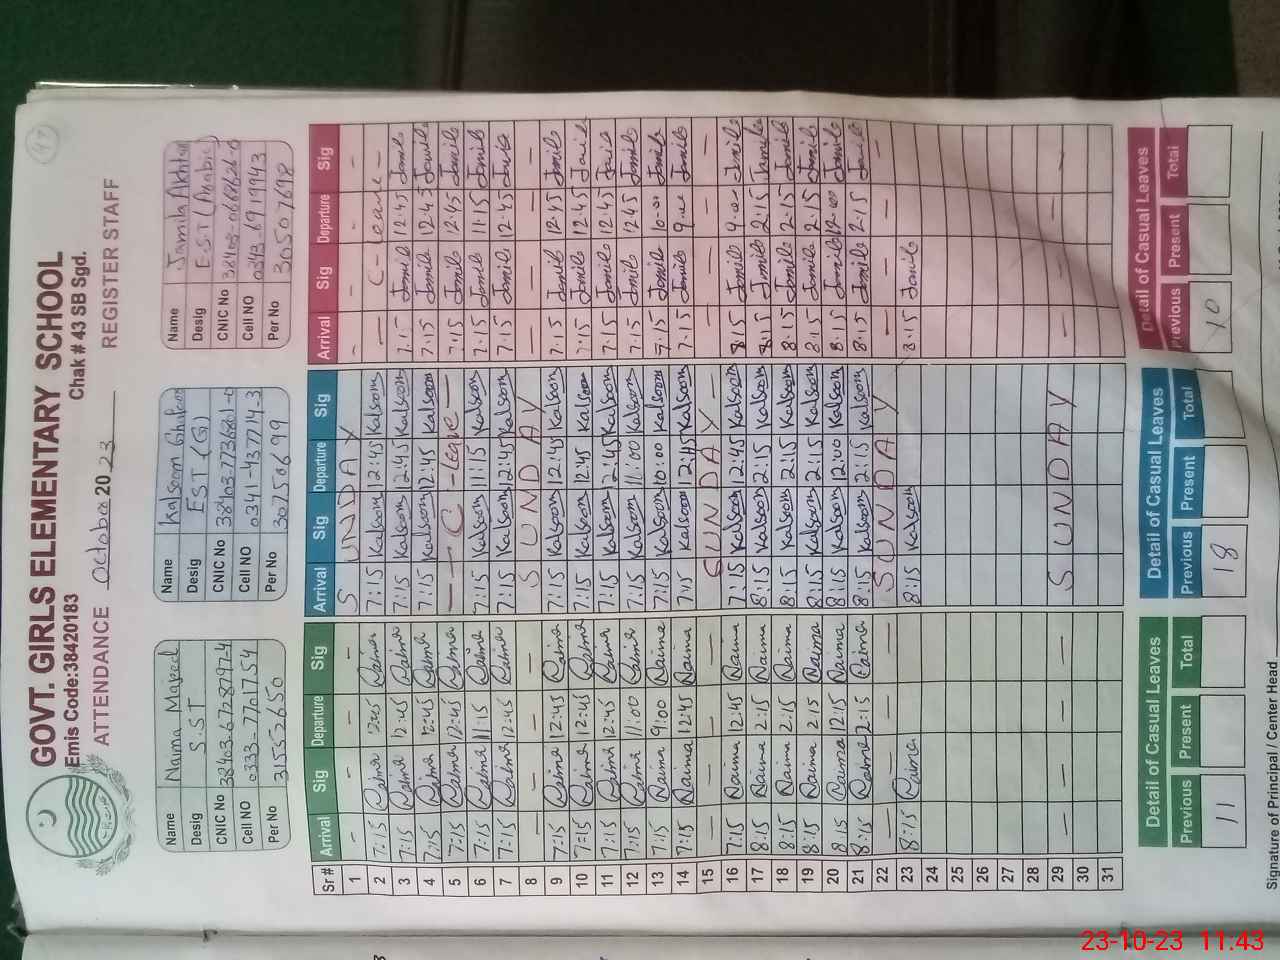 47
GOVT. GIRLS ELEMENTARY SCHOOL
Emis Code:38420183 Chak # 43 SB Sgd.
ATTENDANCE October 2023 REGISTER STAFF
Name Naima Majeed Name Kalsoom Ghafoor Name Jamila Akhtar
Desig S.ST Desig EST (G) Desig E.S.T (Arabic)
CNIC No CNIC No CNIC No
Cell NO 0333-7701754 Cell NO 0341-4377714-3 Cell NO 0343-6919943
Per No 31552650 Per No 30750699 Per No 30507698
Sr # Arrival Sig Departure Sig Arrival Sig Departure Sig Arrival Sig Departure Sig
1 - - - - S U N D A Y - - - -
2 7:15 Naima 12:45 Naima 7:15 Kalsoom 12:45 Kalsoom — C - Leave -
3 7:15 Naima 12:45 Naima 7:15 Kalsoom 12:45 Kalsoom 7:15 Jamila 12:45 Jamila
4 7:15 Naima 12:45 Naima 7:15 Kalsoom 12:45 Kalsoom 7:15 Jamila 12:45 Jamila
5 7:15 Naima 12:45 Naima — C - Leave — 7:15 Jamila 12:45 Jamila
6 7:15 Naima 11:15 Naima 7:15 Kalsoom 11:15 Kalsoom 7:15 Jamila 11:15 Jamila
7 7:15 Naima 12:45 Naima 7:15 Kalsoom 12:45 Kalsoom 7:15 Jamila 12:45 Jamila
8 — — — — S U N D A Y — — — —
9 7:15 Naima 12:45 Naima 7:15 Kalsoom 12:45 Kalsoom 7:15 Jamila 12:45 Jamila
10 7:15 Naima 12:45 Naima 7:15 Kalsoom 12:45 Kalsoom 7:15 Jamila 12:45 Jamila
11 7:15 Naima 12:45 Naima 7:15 Kalsoom 12:45 Kalsoom 7:15 Jamila 12:45 Jamila
12 7:15 Naima 11:00 Naima 7:15 Kalsoom 11:00 Kalsoom 7:15 Jamila 12:45 Jamila
13 7:15 Naima 9:00 Naima 7:15 Kalsoom 10:00 Kalsoom 7:15 Jamila 10:00 Jamila
14 7:15 Naima 12:45 Naima 7:15 Kalsoom 12:45 Kalsoom 7:15 Jamila 9:00 Jamila
15 — — — — S U N D A Y — — — —
16 7:15 Naima 12:45 Naima 7:15 Kalsoom 12:45 Kalsoom 8:15 Jamila 9:00 Jamila
17 8:15 Naima 2:15 Naima 8:15 Kalsoom 2:15 Kalsoom 8:15 Jamila 2:15 Jamila
18 8:15 Naima 2:15 Naima 8:15 Kalsoom 2:15 Kalsoom 8:15 Jamila 2:15 Jamila
19 8:15 Naima 2:15 Naima 8:15 Kalsoom 2:15 Kalsoom 8:15 Jamila 2:15 Jamila
20 8:15 Naima 12:15 Naima 8:15 Kalsoom 12:00 Kalsoom 8:15 Jamila 12:00 Jamila
21 8:15 Naima 2:15 Naima 8:15 Kalsoom 2:15 Kalsoom 8:15 Jamila 2:15 Jamila
22 — — S U N D A Y — — —
23 8:15 Naima 8:15 Kalsoom 8:15 Jamila
24
25
26
27
28
29 — — — S U N D A Y — —
30
31
Detail of Casual Leaves Detail of Casual Leaves Detail of Casual Leaves
Previous Present Total Previous Present Total Previous Present Total
11 18 10
Signature of Principal / Center Head
23-10-23 11.43